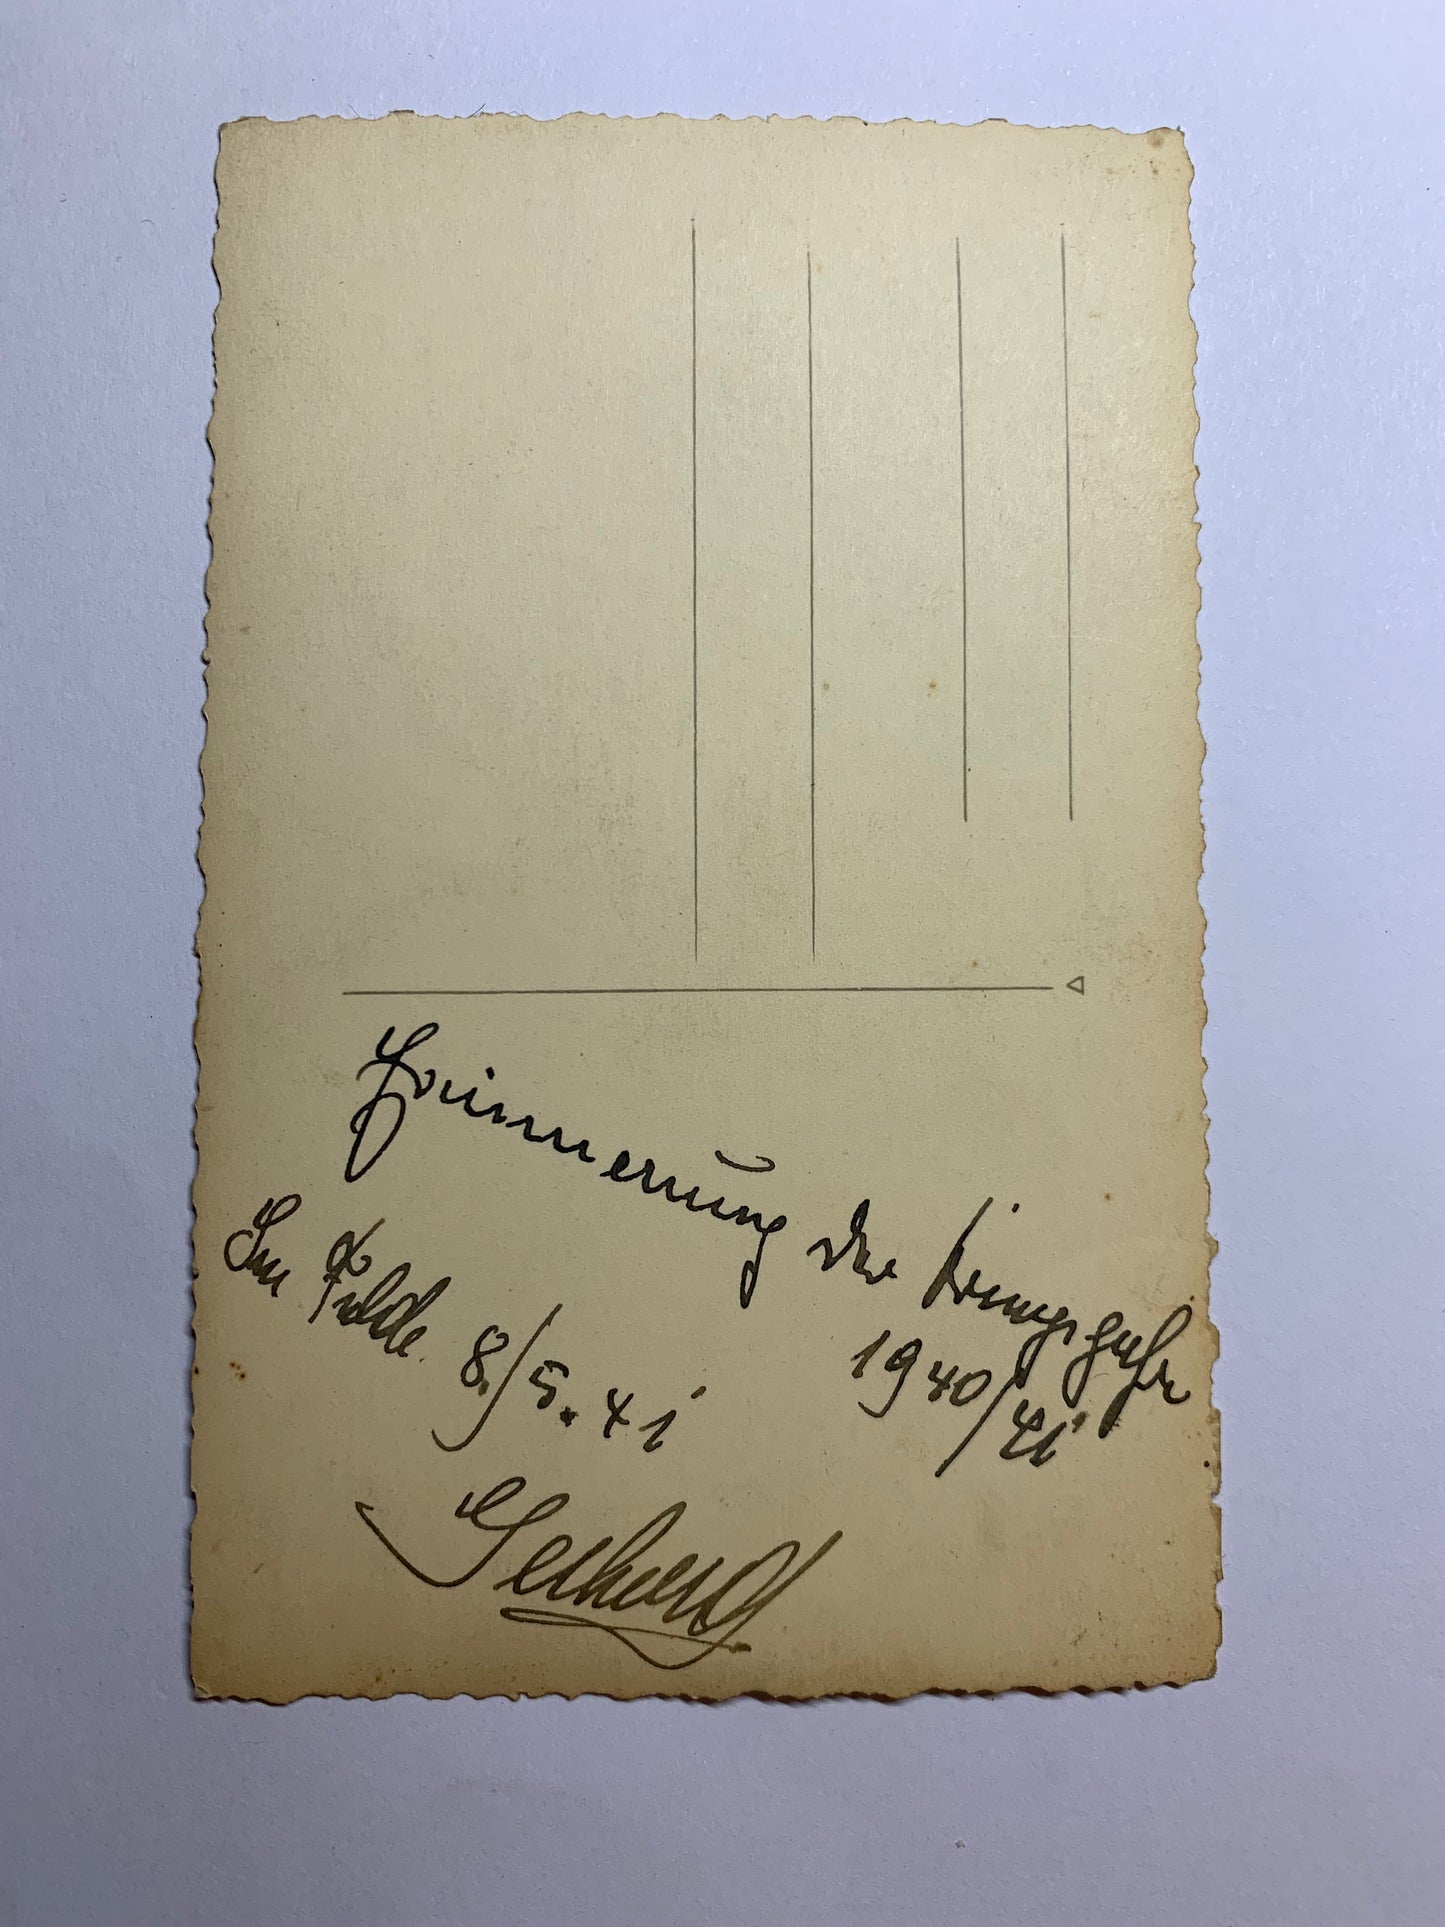 Erinnerung der Kriegsjahre
1940/41
Im Felde. 8./5.41
Gerhard